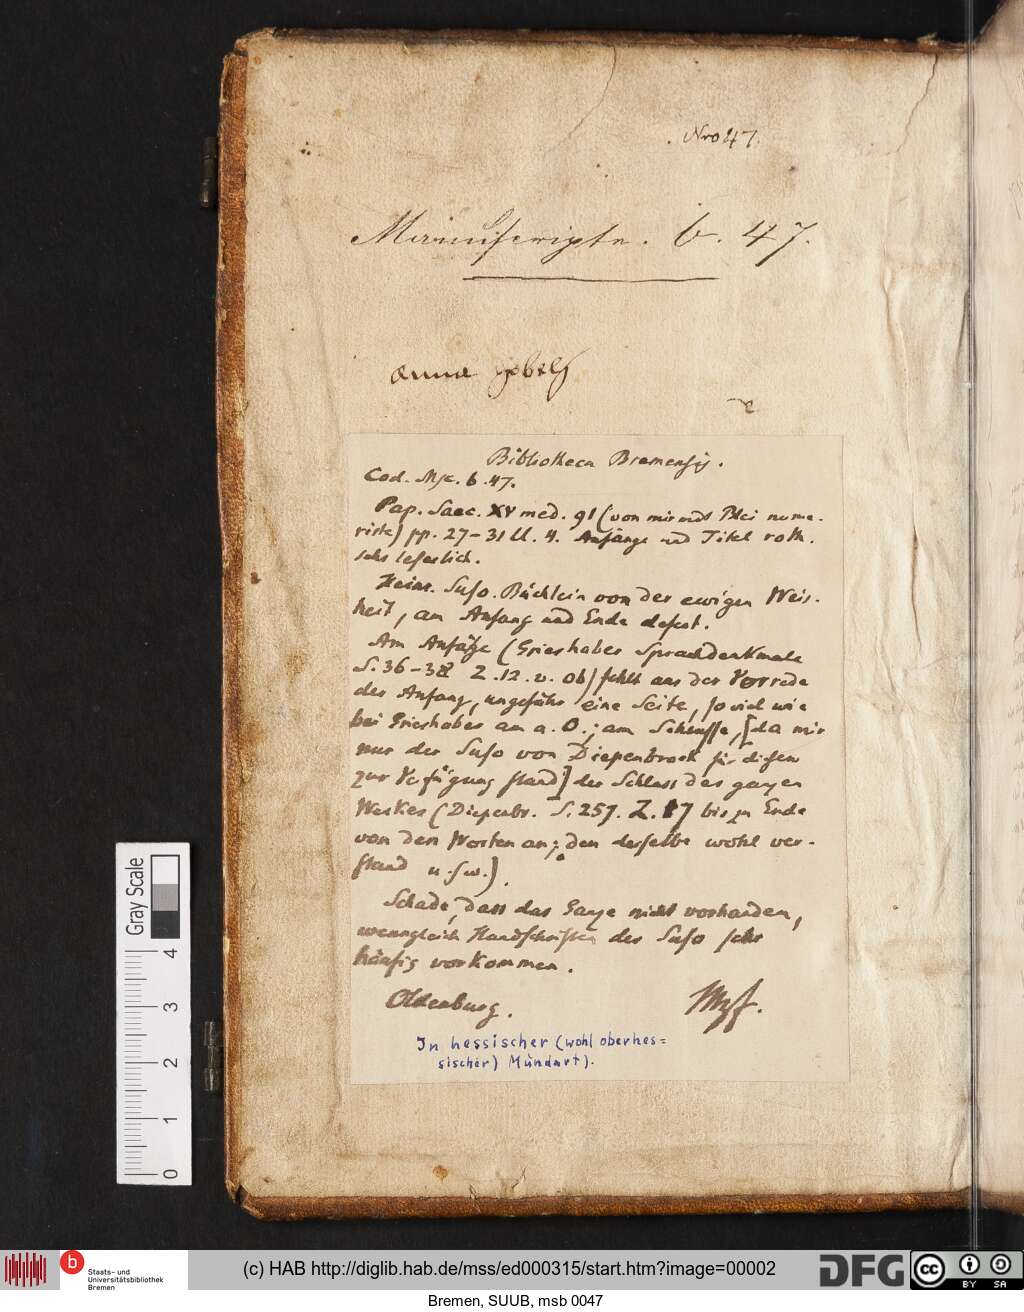 Nro 47.
Manuscripte. b. 47.
anna
Bibliotheca Bremensis.
Cod. Msc. b. 47.
Pap. Saec. XV med. 91 (von mir mit Blei nume-
rirte) pp. 27-31 ll. 4. Anfänge und Titel roth.
sehr leserlich.
Heinr. Suso. Büchlein von der ewigen Weis-
heit, am Anfang und Ende defect.
Am Anfange (Grieshaber Sprachdenkmale
S. 36-38 Z. 12. v. ob) fehlt aus der Vorrede
der Anfang, ungefähr eine Seite, so viel wie
bei Grieshaber am a. O.; am Schlusse, [da mir
nur der Suso von Diepenbrock für diesen
zur Verfügung stand] der Schluss des ganzen
Werkes (Diepenbr. S. 257. Z. 17 bis zu Ende
von den Worten an; den derselbe wohl ver-
stand u.s.w.).
Schade, dass das Ganze nicht vorhanden,
wenngleich Handschriften des Suso sehr
häufig vorkommen.
Oldenburg.
In hessischer (wohl oberhes=
sischer) Mundart).
Gray Scale
0 1 2 3 4
b
Staats- und
Universitätsbibliothek
Bremen
(c) HAB http://diglib.hab.de/mss/ed000315/start.htm?image=00002
DFG
cc
BY SA
Bremen, SUUB, msb 0047